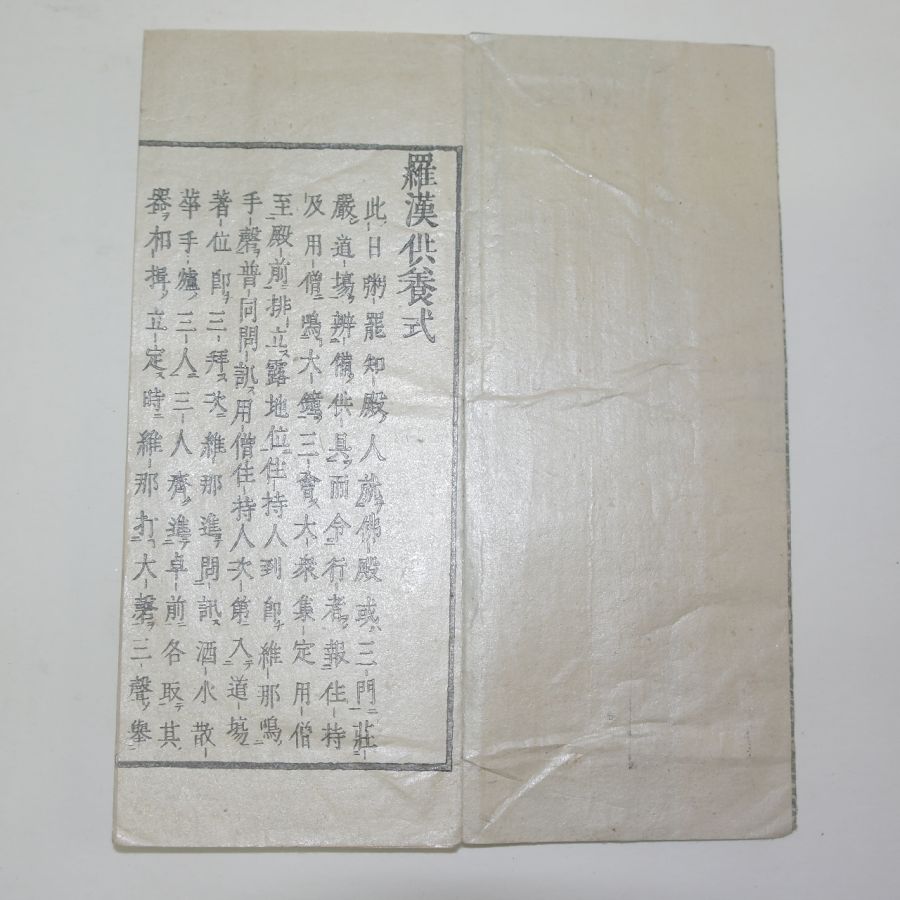 羅漢供養式
此日粥罷知殿人於佛殿或三門莊
嚴道場辨備供具而令行者報住持
及用僧鳴大鐘三會大衆集定用僧
至殿前排立露地位住持人到卽維那鳴
手磬普同問訊用僧住持人次第入道場
著位卽三拜次維那進問訊酒水散
華手爐三人三人齊進卓前各取其
器和揖立定時維那打大磬三聲擧